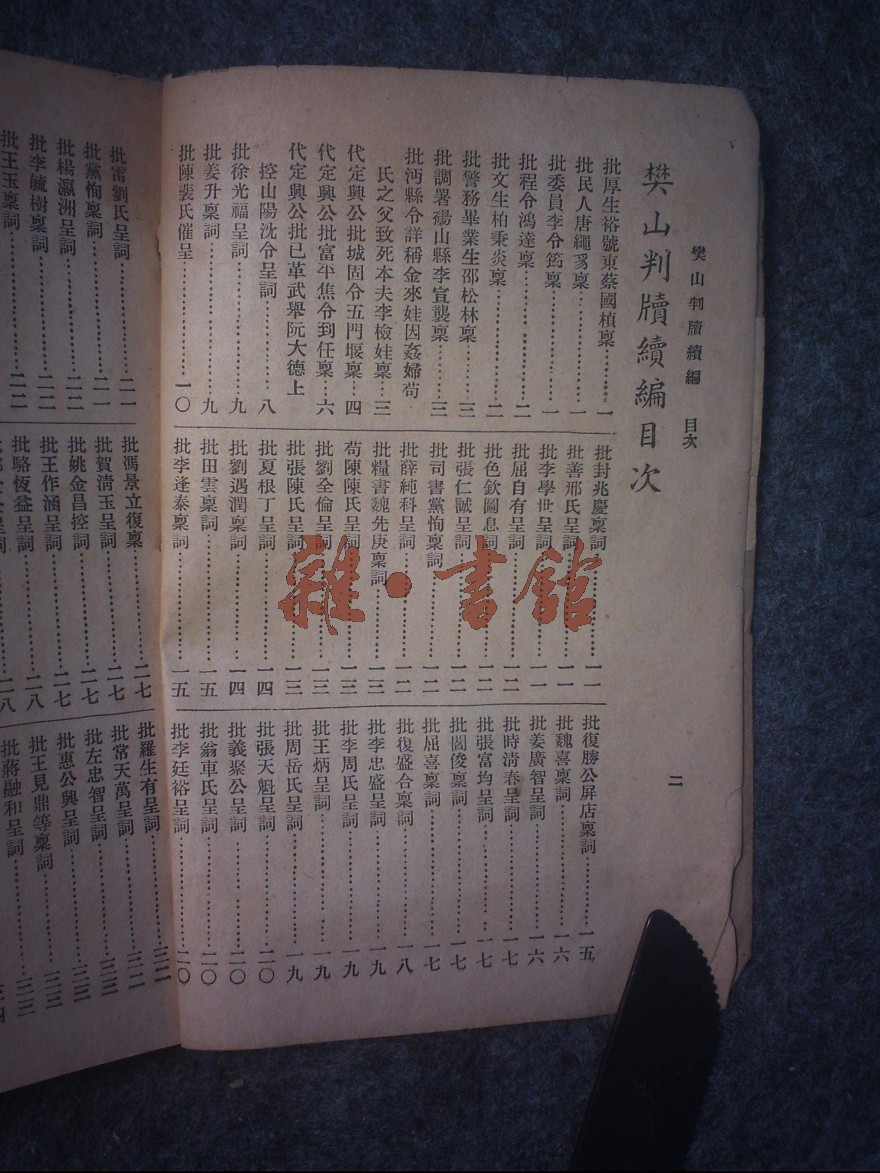 樊山判牘續編 目次
二
樊山判牘續編目次
批厚生裕號東蔡國楨稟………一
批民人唐繩武稟………一
批委員李令筠稟………一
批程令鴻達稟………二
批文生柏秉炎稟………二
批警務畢業生邵松林稟………三
批調署碭山縣李宣襲稟………三
批沔縣令詳稱金來娃因姦婦苟
氏之父致死本夫李檢娃稟…三
代定興公批城固令五門堰稟…四
代定興公批富平焦令到任稟…六
代定興公批已革武舉阮大德上
控山陽沈令呈詞………八
批徐光福呈詞………九
批姜升稟詞………九
批陳裴氏催呈………一〇
批封兆慶稟詞………一一
批善邢氏呈詞………一一
批李學世呈詞………一一
批屈自有呈詞………一二
批色欽圖息詞………一二
批張仁誠呈詞………一二
批司書黨恂稟詞………一二
批薛純科呈詞………一二
批糧書魏先庚稟詞………一三
苟陳陳氏呈詞………一三
批劉全倫呈詞………一三
批張陳氏呈詞………一三
批夏根丁呈詞………一四
批劉遇潤稟詞………一四
批田雲稟詞………一五
批李逢泰稟詞………一五
批復勝公屏店稟詞………一五
批魏喜稟詞………一六
批姜廣智呈詞………一六
批時清泰呈詞………一七
批張富均呈詞………一七
批閻俊稟詞………一七
批屈喜稟詞………一七
批復盛合稟詞………一八
批李忠盛呈詞………一九
批李周氏呈詞………一九
批王炳呈詞………一九
批周岳氏呈詞………一九
批張天魁呈詞………二〇
批義聚公呈詞………二〇
批翁車氏呈詞………二〇
批李廷裕呈詞………二〇
批雷劉氏呈詞………二一
批黨恂稟詞………二一
批楊瀛洲呈詞………二二
批李毓樹稟詞………二二
批王玉稟詞………二二
批馮景立復稟………二七
批賀清玉呈詞………二七
批姚金昌控詞………二七
批王作涵呈詞………二七
批駱恆益呈詞………二八
批羅生有呈詞………三二
批常天萬呈詞………三二
批左忠智呈詞………三三
批惠公興呈詞………三三
批王見鼎等稟詞………三三
批蔣融和呈詞………三三
雜·書館